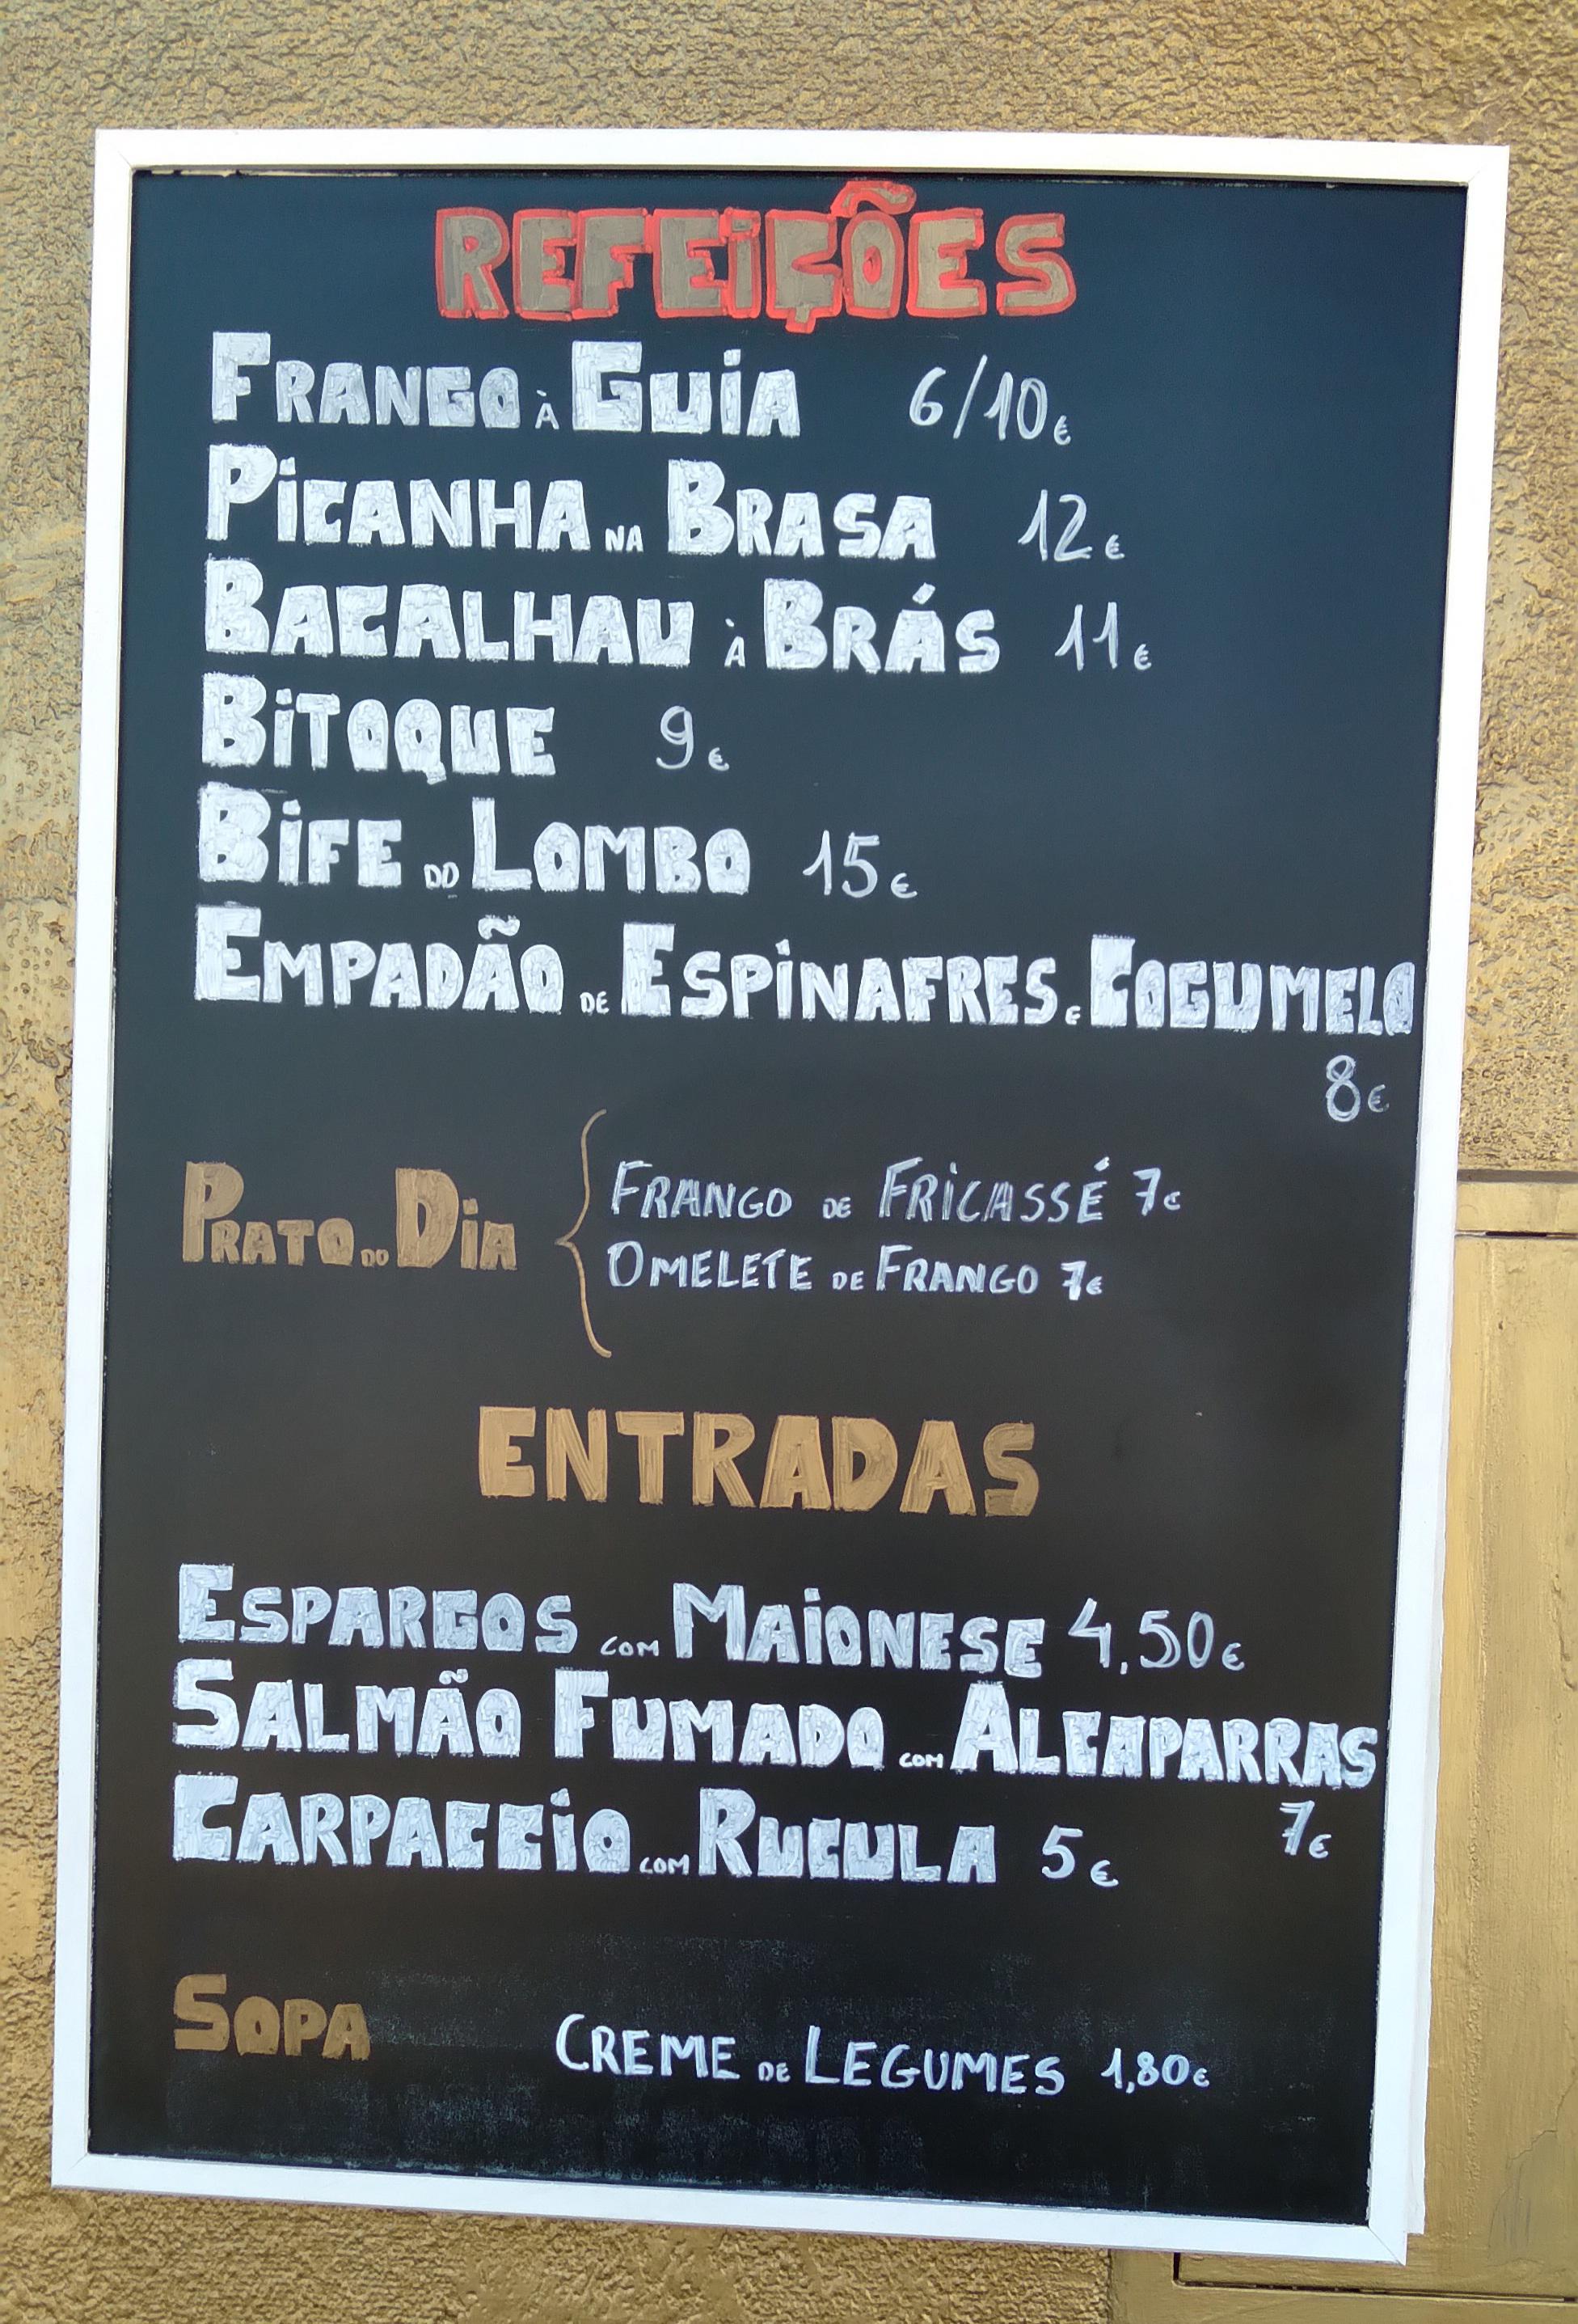 REFEIÇÕES
FRANGO À GUIA 6/10€
PICANHA NA BRASA 12€
BACALHAU À BRÁS 11€
BITOQUE 9€
BIFE DO LOMBO 15€
EMPADÃO DE ESPINAFRES E COGUMELO
8€
PRATO DO DIA
FRANGO DE FRICASSÉ 7€
OMELETE DE FRANGO 7€
ENTRADAS
ESPARGOS COM MAIONESE 4,50€
SALMÃO FUMADO COM ALCAPARRAS
7€
CARPACCIO COM RUCULA 5€
SOPA CREME DE LEGUMES 1,80€